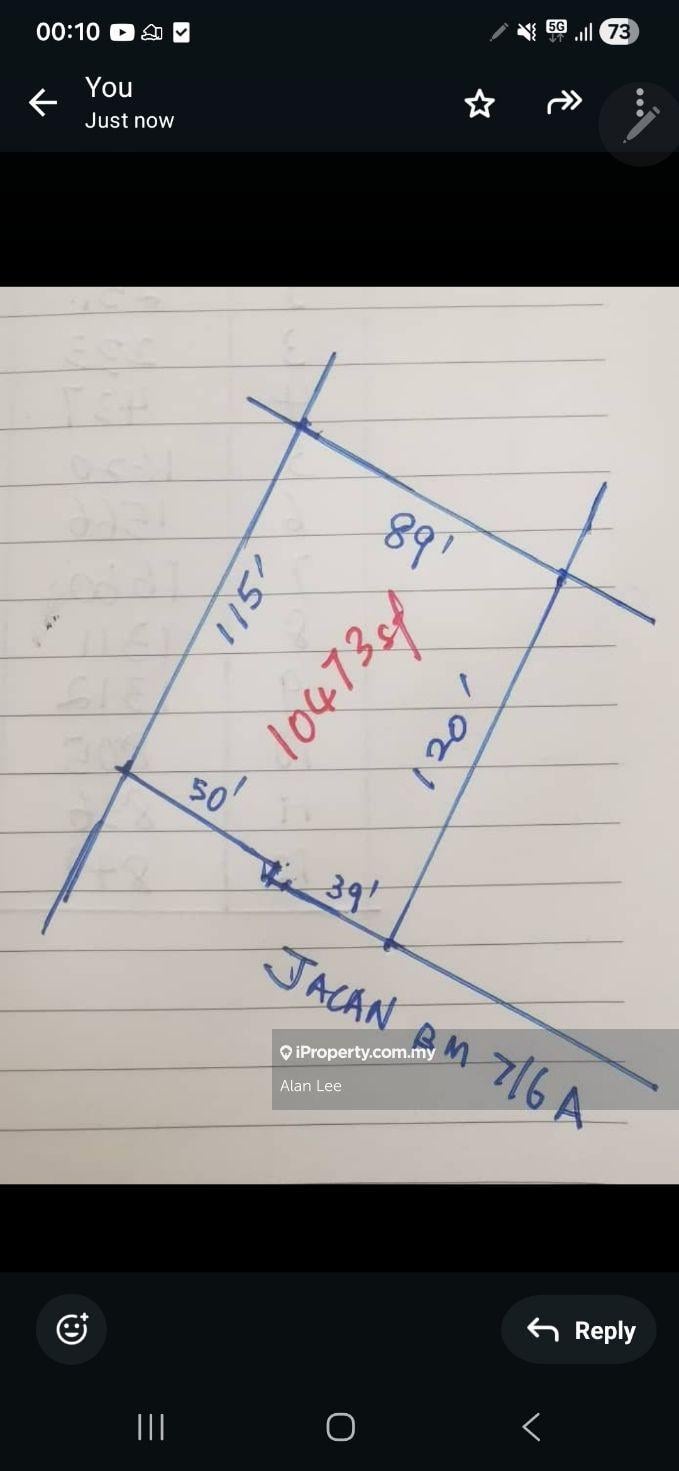 00:10
5G
73
You
Just now
89'
115'
10473 sf
120'
50'
39'
JALAN BM 7/6A
iProperty.com.my
Alan Lee
Reply